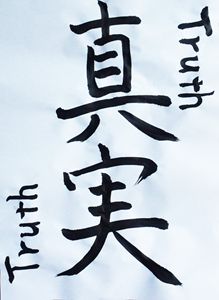 Truth
真実
Truth